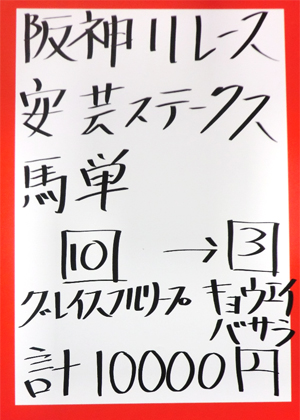 阪神11レース
安芸ステークス
馬単
10 → 3
グレイスフルリープ キョウエイバサラ
計10000円